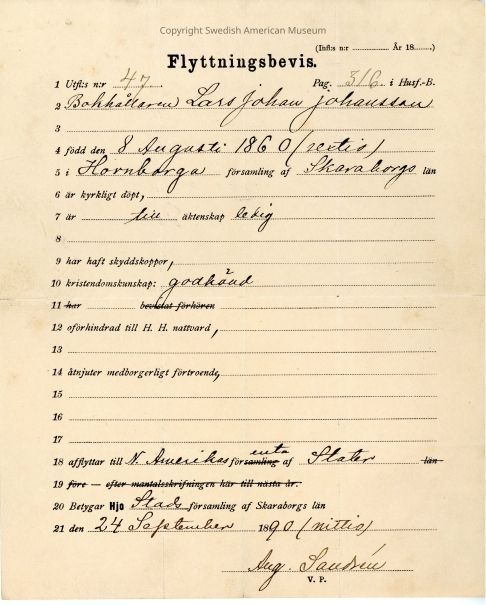 Copyright Swedish American Museum
(Infl: n:r ........ År 18......)
Flyttningsbevis.
1 Utfl: n:r 47 Pag. 316 i Husf.-B.
2 Bokhållaren Lars Johan Johansson
3
4 född den 8 Augusti 1860 (sextio)
5 i Hornborga församling af Skaraborgs län
6 är kyrkligt döpt,
7 är till äktenskap ledig
8
9 har haft skyddskoppor,
10 kristendomskunskap: godkänd
11 har bevistat förhören
12 oförhindrad till H. H. nattvard,
13
14 åtnjuter medborgerligt förtroende,
15
16
17
18 afflyttar till N. Amerikas församling enta af Stater län
19 före — efter mantalsskrifningen här till nästa år.
20 Betygar Hjo Stads församling af Skaraborgs län
21 den 24 September 1890 (nittio)
Aug. Sandrén
V. P.